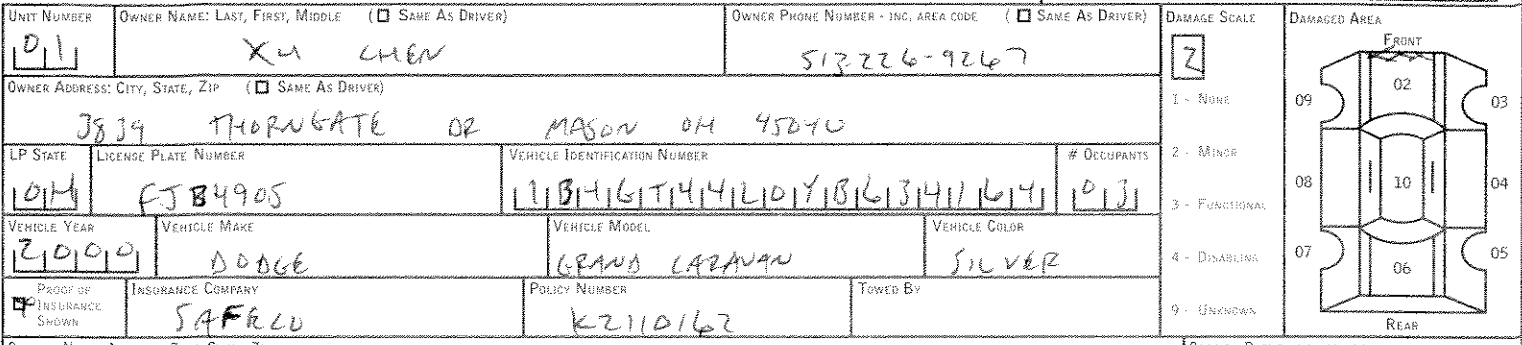 UNIT NUMBER
01
OWNER NAME: LAST, FIRST, MIDDLE ( SAME AS DRIVER)
XU CHEN
OWNER PHONE NUMBER - INC. AREA CODE ( SAME AS DRIVER)
513 226-9267
DAMAGE SCALE
2
1 - NONE
2 - MINOR
3 - FUNCTIONAL
4 - DISABLING
9 - UNKNOWN
DAMAGED AREA
FRONT
02
09
03
08
10
04
07
06
05
REAR
OWNER ADDRESS: CITY, STATE, ZIP ( SAME AS DRIVER)
3839 THORNGATE DR MASON OH 45040
LP STATE
OH
LICENSE PLATE NUMBER
FJB4905
VEHICLE IDENTIFICATION NUMBER
1B4GT44L0YB634164
# OCCUPANTS
03
VEHICLE YEAR
2000
VEHICLE MAKE
DODGE
VEHICLE MODEL
GRAND CARAVAN
VEHICLE COLOR
SILVER
PROOF OF INSURANCE SHOWN
INSURANCE COMPANY
SAFECO
POLICY NUMBER
K2110162
TOWED BY